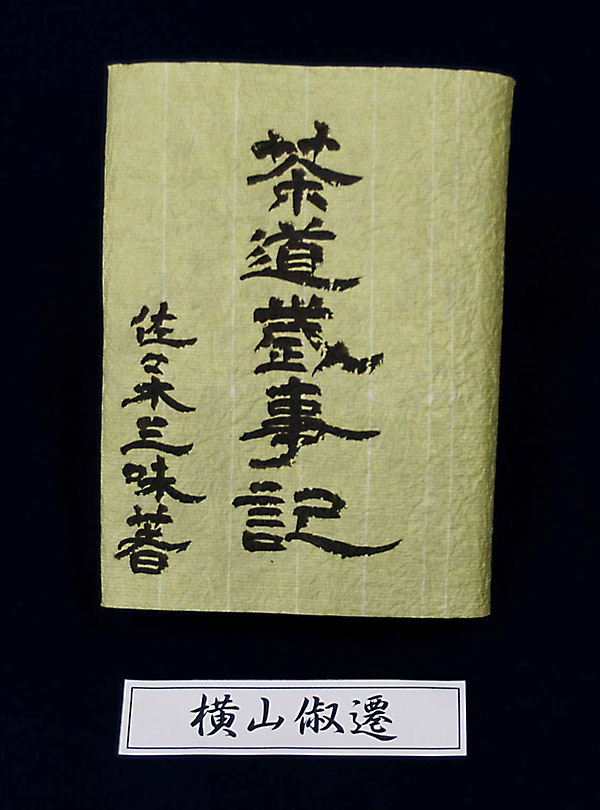 茶道歳事記
佐々木三味著
横山俶遷